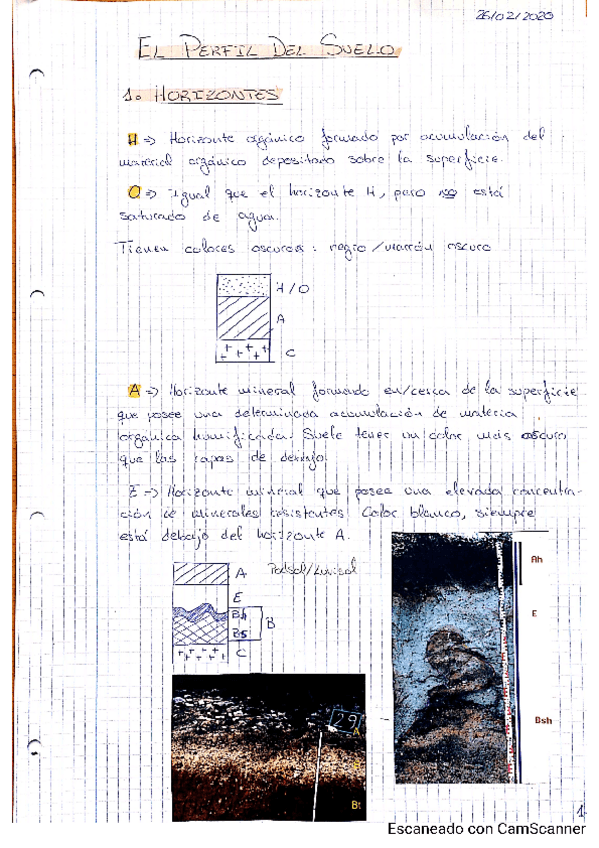 26/02/2020
EL PERFIL DEL SUELO
1. HORIZONTES
H => Horizonte orgánico formado por acumulación del
material orgánico depositado sobre la superficie.
O => Igual que el horizonte H, pero no está
saturado de agua.
Tienen colores oscuros: negro/marrón oscuro
H/O
A
C
A => Horizonte mineral formado en/cerca de la superficie
que posee una determinada acumulación de materia
orgánica humificada. Suele tener un color más oscuro
que las capas de debajo.
E => Horizonte mineral que posee una elevada concentra-
ción de minerales resistentes. Color blanco, siempre
está debajo del horizonte A.
A
Podsol/Luvisol
E
Bh
B
Bs
C
Ah
E
Bsh
29
A
Bt
1
Escaneado con CamScanner